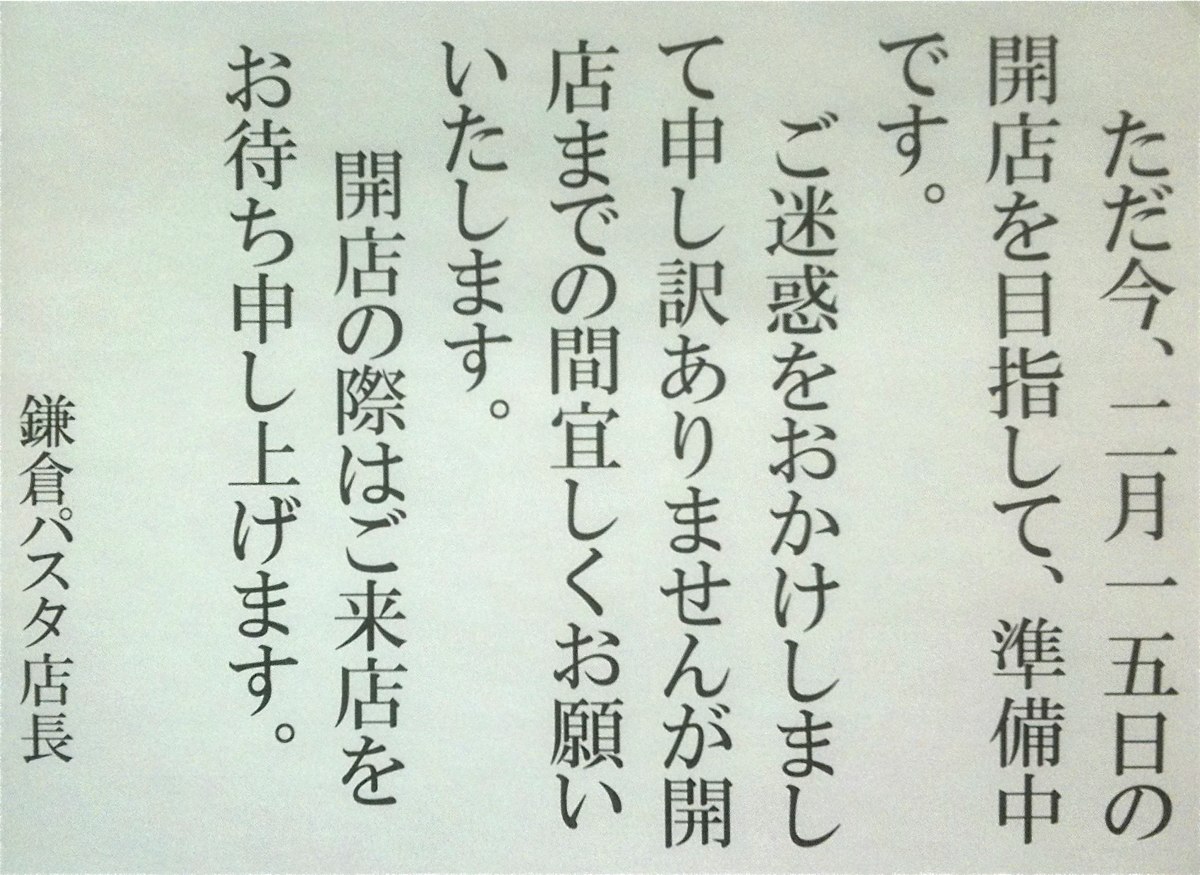 ただ今、二月一五日の
開店を目指して、準備中
です。
ご迷惑をおかけしまし
て申し訳ありませんが開
店までの間宜しくお願い
いたします。
開店の際はご来店を
お待ち申し上げます。
鎌倉パスタ店長